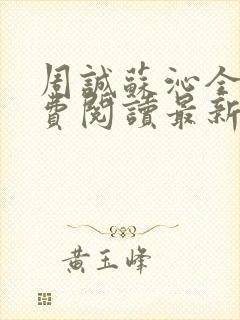 周誠蘇沁全
費閱讀最新
黃玉峰